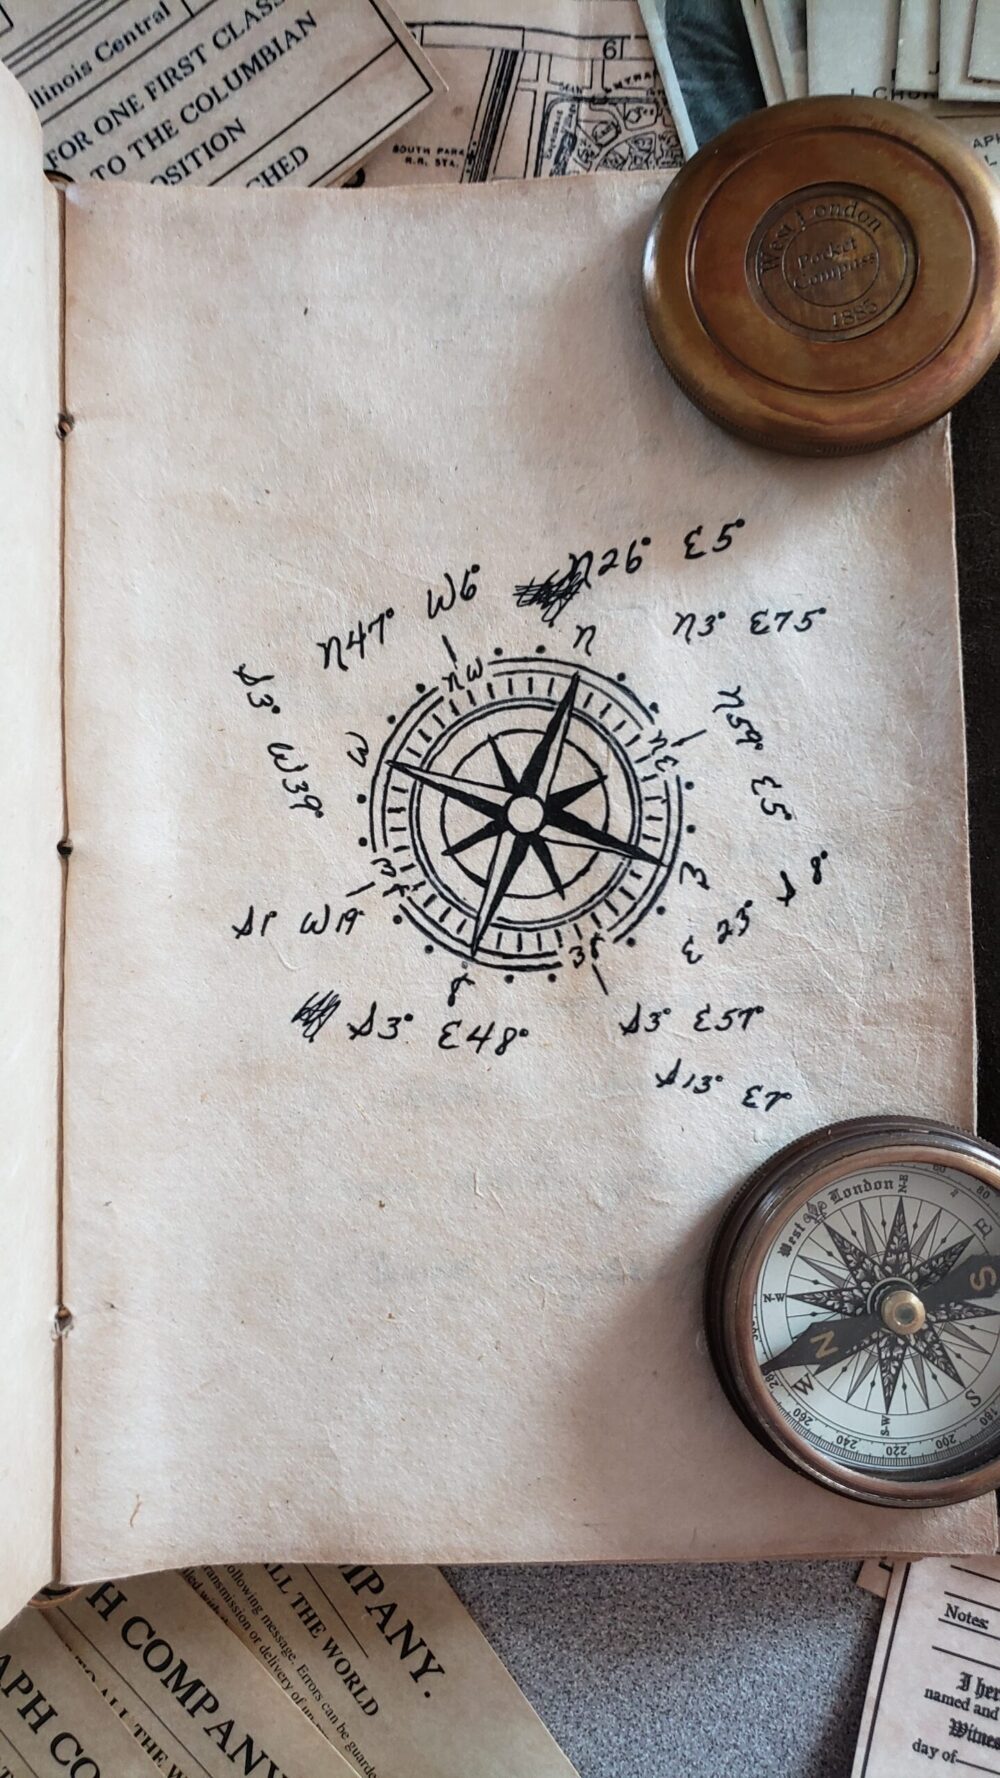 Illinois Central
FOR ONE FIRST CLASS
TO THE COLUMBIAN
OSITION
CHED
6
SOUTH PARK
R.R. STA.
West London
Pocket
Compass
1885
N26° E5°
N47° W6°
N3° E75°
S3° W39°
N59° E5°
N
NW
NE
W
E
SW
SE
S
S1° W19°
S 8°
E 23°
S3° E48°
S3° E57°
S13° E7°
West London
N-E
60
80
E
N-W
N
S
W
S
S-W
280
260
240
220
200
180
MPANY.
ALL THE WORLD
following message. Errors can be guarde
ransmission or delivery of
H COMPANY
TO ALL THE W
APH CO
Notes:
I her
named and
Witnes
day of